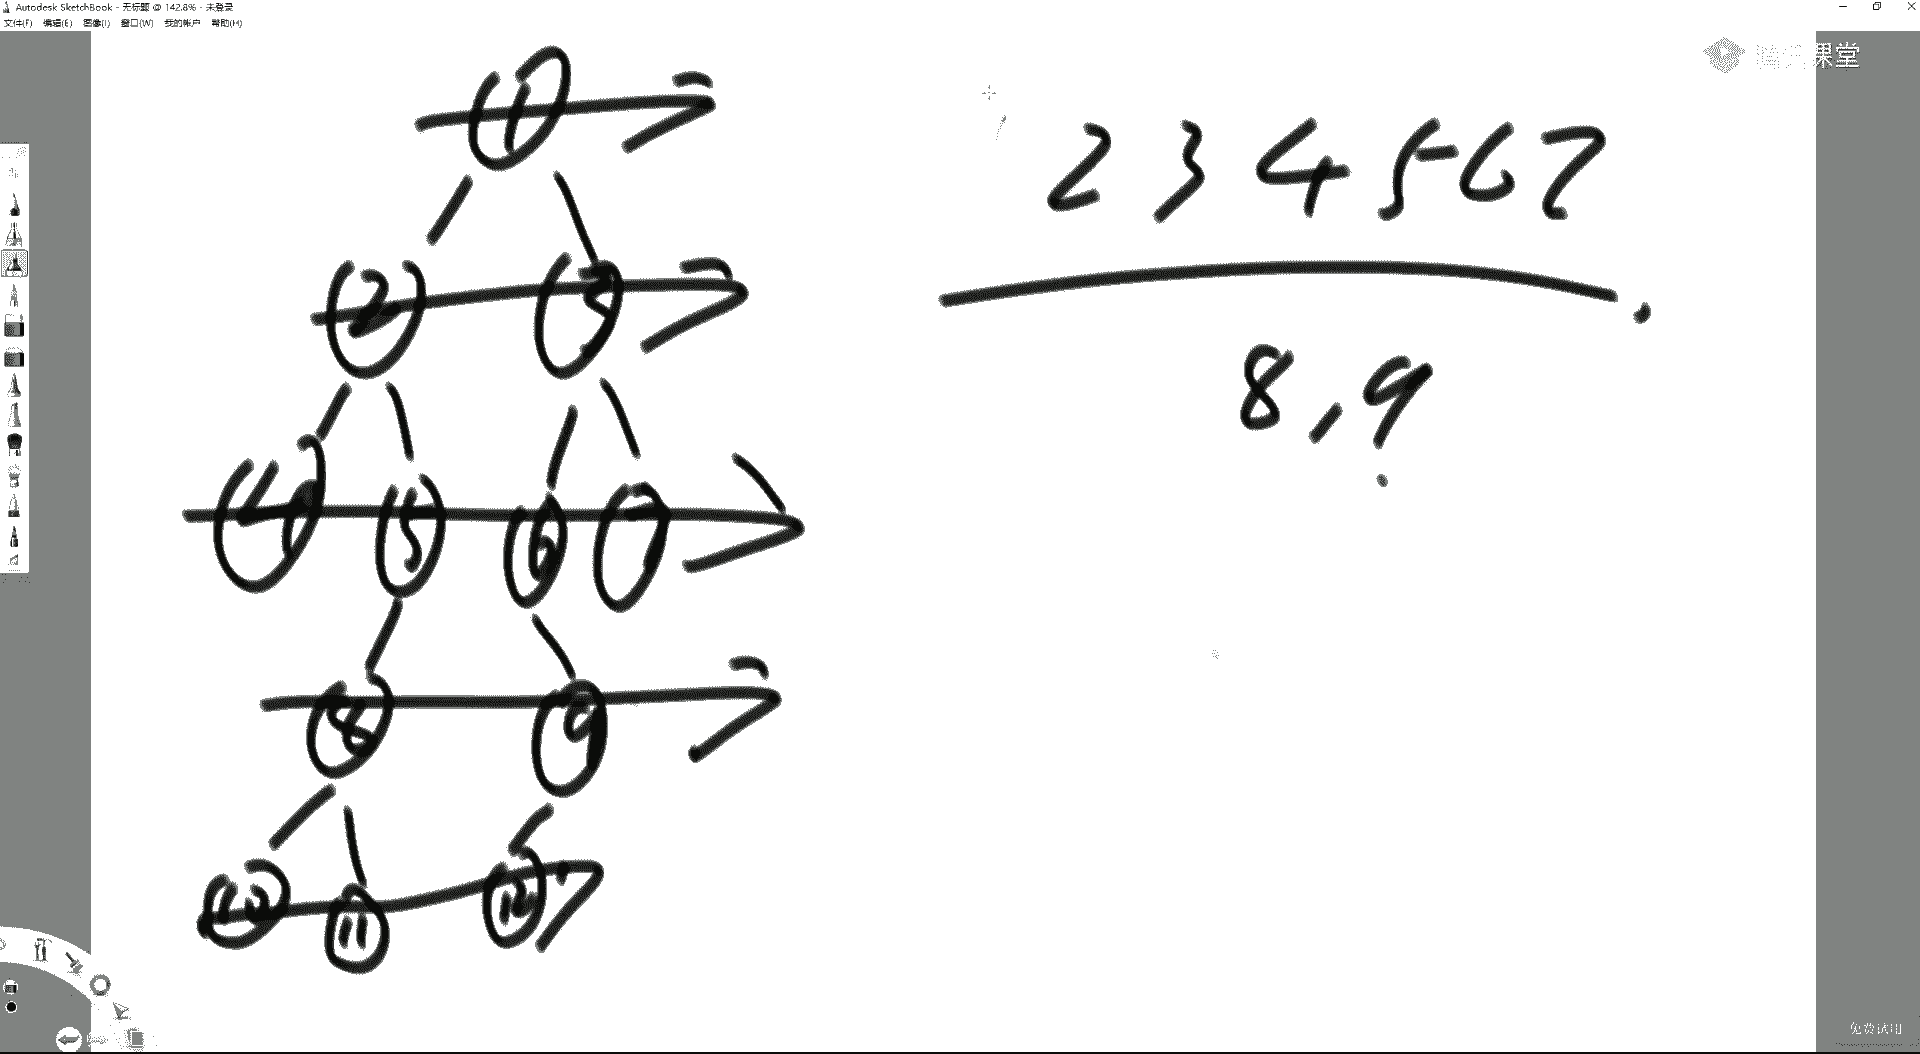 Autodesk SketchBook - 无标题 @ 142.8% - 未登录
文件(F) 编辑(E) 图像(I) 窗口(W) 我的帐户 帮助(H)
腾讯课堂
1
2 3
4 5 6 7
8 9
10 11 12
2 3 4 5 6 7
8, 9
免费试用